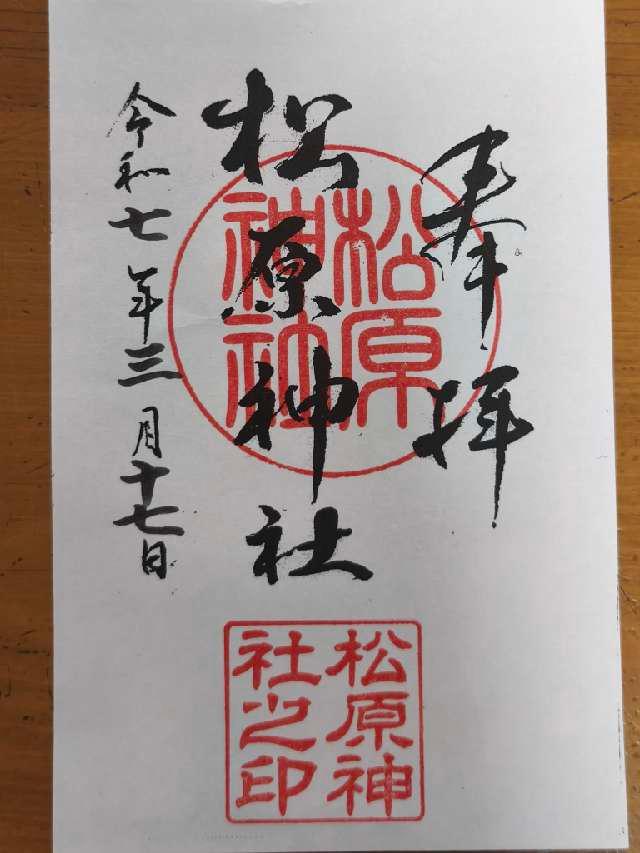 奉拝
松原神社
令和七年三月十七日
松原
神社
松原神
社之印